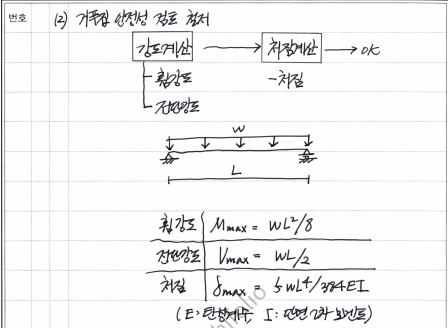 번호
(2) 거푸집 안정성 검토 절차
강도계산 → 처짐계산 → OK
휨강도 - 처짐
전단강도
W
L
휨강도 Mmax = WL²/8
전단강도 Vmax = WL/2
처짐 δmax = 5WL⁴/384EI
(E: 탄성계수 I: 단면 2차 모멘트)